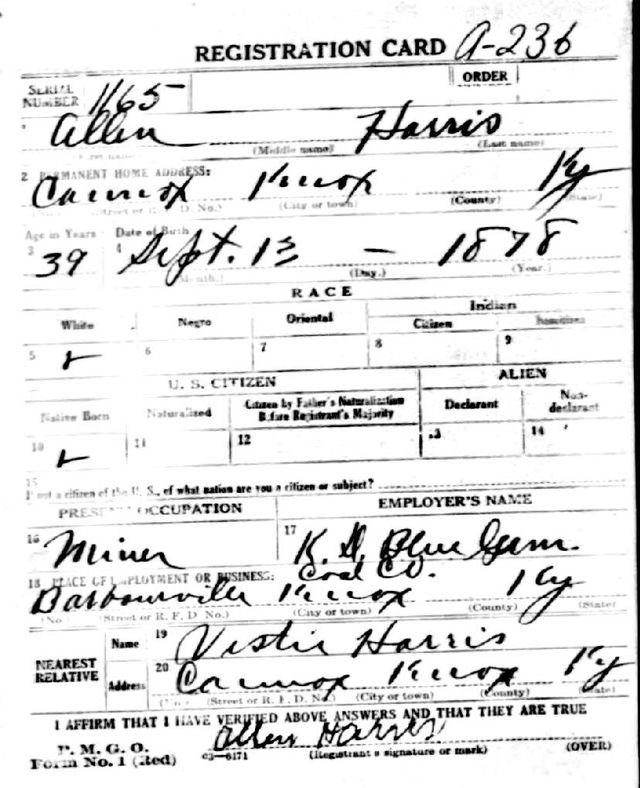 REGISTRATION CARD A-236
SERIAL NUMBER 1165 ORDER
1 Allen Harris
(First name) (Middle name) (Last name)
2 PERMANENT HOME ADDRESS:
Cannox Knox Ky
(Street or R. F. D. No.) (City or town) (County) (State)
Age in Years Date of Birth
3 39 4 Sept. 13 – 1878
(Month.) (Day.) (Year.)
RACE
White Negro Oriental Indian
Citizen Noncitizen
5 6 7 8 9
U. S. CITIZEN ALIEN
Native Born Naturalized Citizen by Father's Naturalization Before Registrant's Majority Declarant Non-declarant
10 11 12 13 14
15
If not a citizen of the U. S., of what nation are you a citizen or subject?
PRESENT OCCUPATION EMPLOYER'S NAME
16 Miner 17 Blue Gem
Coal Co.
18 PLACE OF EMPLOYMENT OR BUSINESS:
Barbourville Knox Ky
(No.) (Street or R. F. D. No.) (City or town) (County) (State)
NEAREST RELATIVE
Name 19 Vestie Harris
Address 20 Cannox Knox Ky
(No.) (Street or R. F. D. No.) (City or town) (County) (State)
I AFFIRM THAT I HAVE VERIFIED ABOVE ANSWERS AND THAT THEY ARE TRUE
Allen Harris
P. M. G. O.
Form No. 1 (Red) 03—6171 (Registrant's signature or mark) (OVER)